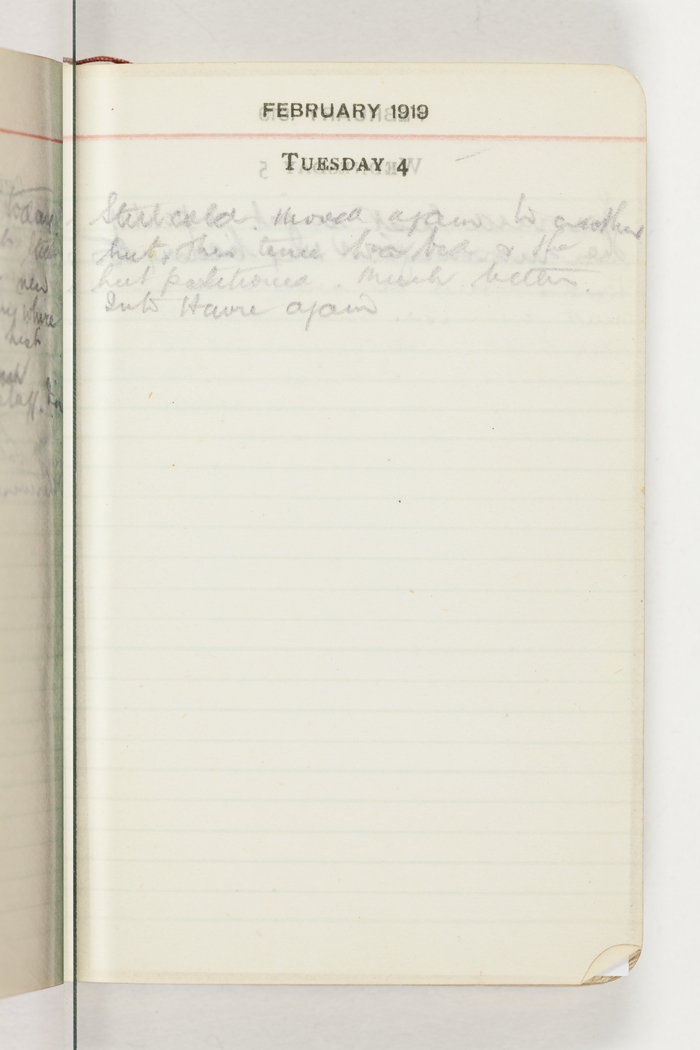 FEBRUARY 1919
TUESDAY 4
Still cold. Moved again to another
hut, this time to a bed & the
hut partitioned. Much better.
Into Havre again.
today
new
where
hut
staff.